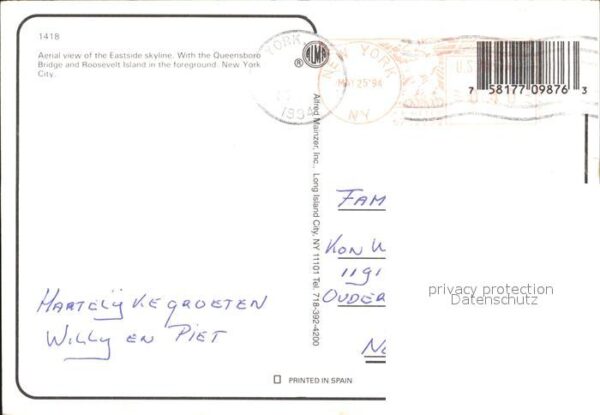 1418
Aerial view of the Eastside skyline. With the Queensboro
Bridge and Roosevelt Island in the foreground. New York
City.
ALMA
®
YORK
1994
NEW YORK
MAY 25 '94
NY
U.S.
7 58177 09876 3
Alfred Mainzer, Inc., Long Island City, NY 11101 Tel. 718-392-4200
FAM
KON W
1191
OUDER
NE
privacy protection
Datenschutz
HARTELIJKE GROETEN
WILLY EN PIET
PRINTED IN SPAIN